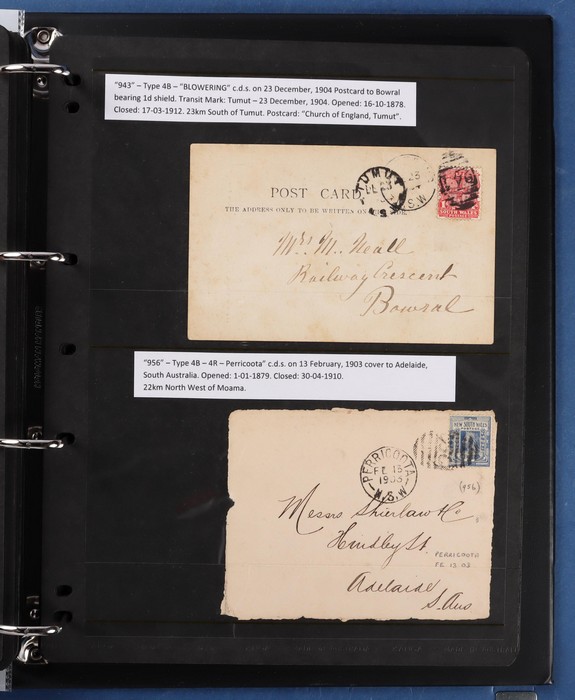 "943" – Type 4B – "BLOWERING" c.d.s. on 23 December, 1904 Postcard to Bowral
bearing 1d shield. Transit Mark: Tumut – 23 December, 1904. Opened: 16-10-1878.
Closed: 17-03-1912. 23km South of Tumut. Postcard: "Church of England, Tumut".
POST CARD
THE ADDRESS ONLY TO BE WRITTEN ON
TUMUT
DE 23
N.S.W
SOUTH WALES
Mrs. M. Neall
Railway Crescent
Bowral
"956" – Type 4B – 4R – Perricoota" c.d.s. on 13 February, 1903 cover to Adelaide,
South Australia. Opened: 1-01-1879. Closed: 30-04-1910.
22km North West of Moama.
NEW SOUTH WALES
PERRICOOTA
FE 13
1903
N.S.W
(956)
Messrs Shierlaw & Co.
Hindley St.
PERRICOOTA
FE 13 03
Adelaide
S. Aus